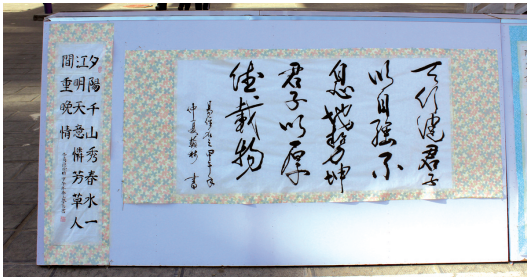 天行健君子
以自強不
息地勢坤
君子以厚
德載物
仲夏
書
夕陽千山秀春水一
江明天意憐芳草人
間重晚情